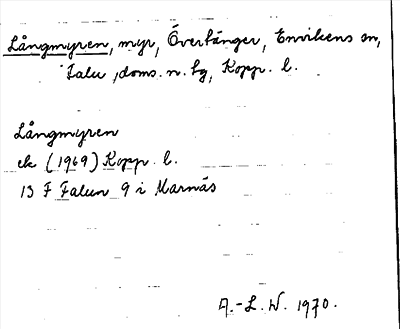 Långmyren, myr, Övertänger, Envikens sn,
Falu , doms. n. tg, Kopp. l.
Långmyren
ek (1969) Kopp. l.
13 F Falun 9 i Marnäs
A.-L. W. 1970.